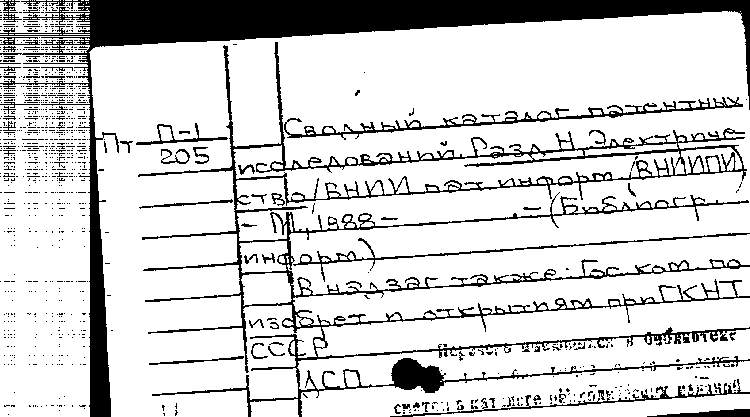 Пт П-1
205
Сводный каталог патентных
исследований. Разд. Н, Электриче-
ство / ВНИИ пат. информ. (ВНИИПИ).
- М., 1988- . - (Библиогр.
информ.)
В надзаг. также: Гос. ком. по
изобрет. и открытиям при ГКНТ
СССР
ДСП
имеющихся в библиотеке
смотри в каталоге изданий